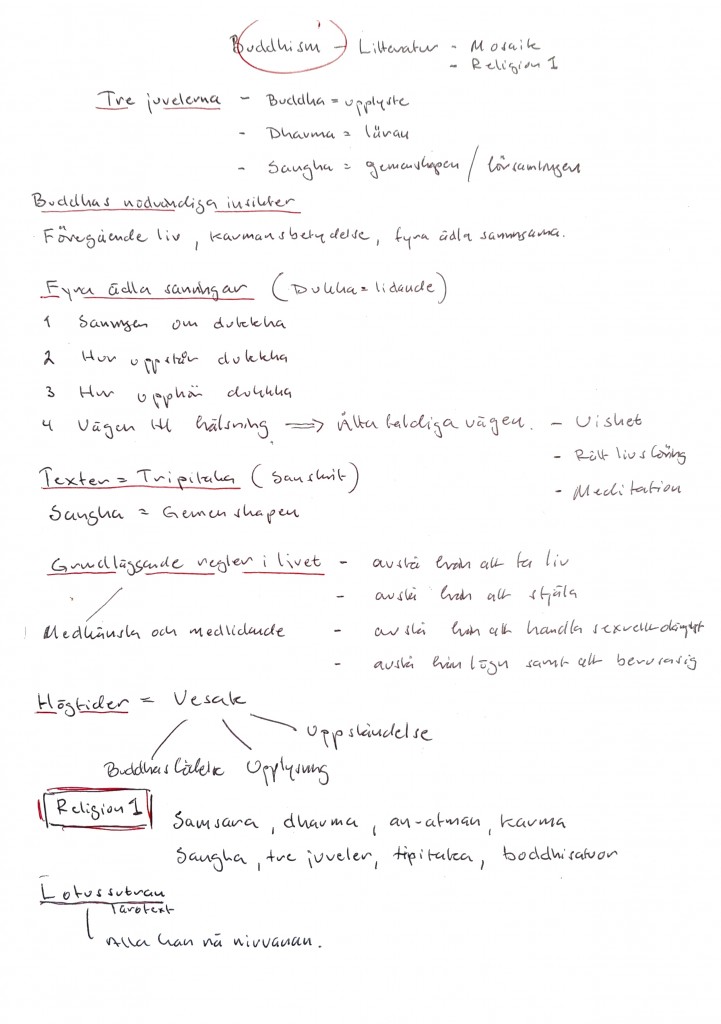 Buddhism - Litteratur - Mosaik
- Religion 1
Tre juvelerna - Buddha = upplyste
- Dharma = läran
- Sangha = gemenskapen / församlingen
Buddhas nödvändiga insikter
Föregående liv, karmans betydelse, fyra ädla sanningarna.
Fyra ädla sanningar (Dukha = lidande)
1 Sanningen om dukkha
2 Hur uppstår dukkha
3 Hur upphör dukkha
4 Vägen till frälsning => Åttafaldiga vägen. - Vishet
- Rätt livsföring
- Meditation
Texter = Tripitaka (Sanskrit)
Sangha = Gemenskapen
Grundläggande regler i livet - avstå från att ta liv
- avstå från att stjäla
Medkänsla och medlidande - avstå från att handla sexuellt
- avstå från lögn samt att berusa sig
Högtider = Vesak
Uppståndelse
Buddhas födelse Upplysning
Religion 1
Samsara, dharma, an-atman, karma
Sangha, tre juveler, tipitaka, boddhisatvor
Lotussutran
Alla kan nå nirvanan.